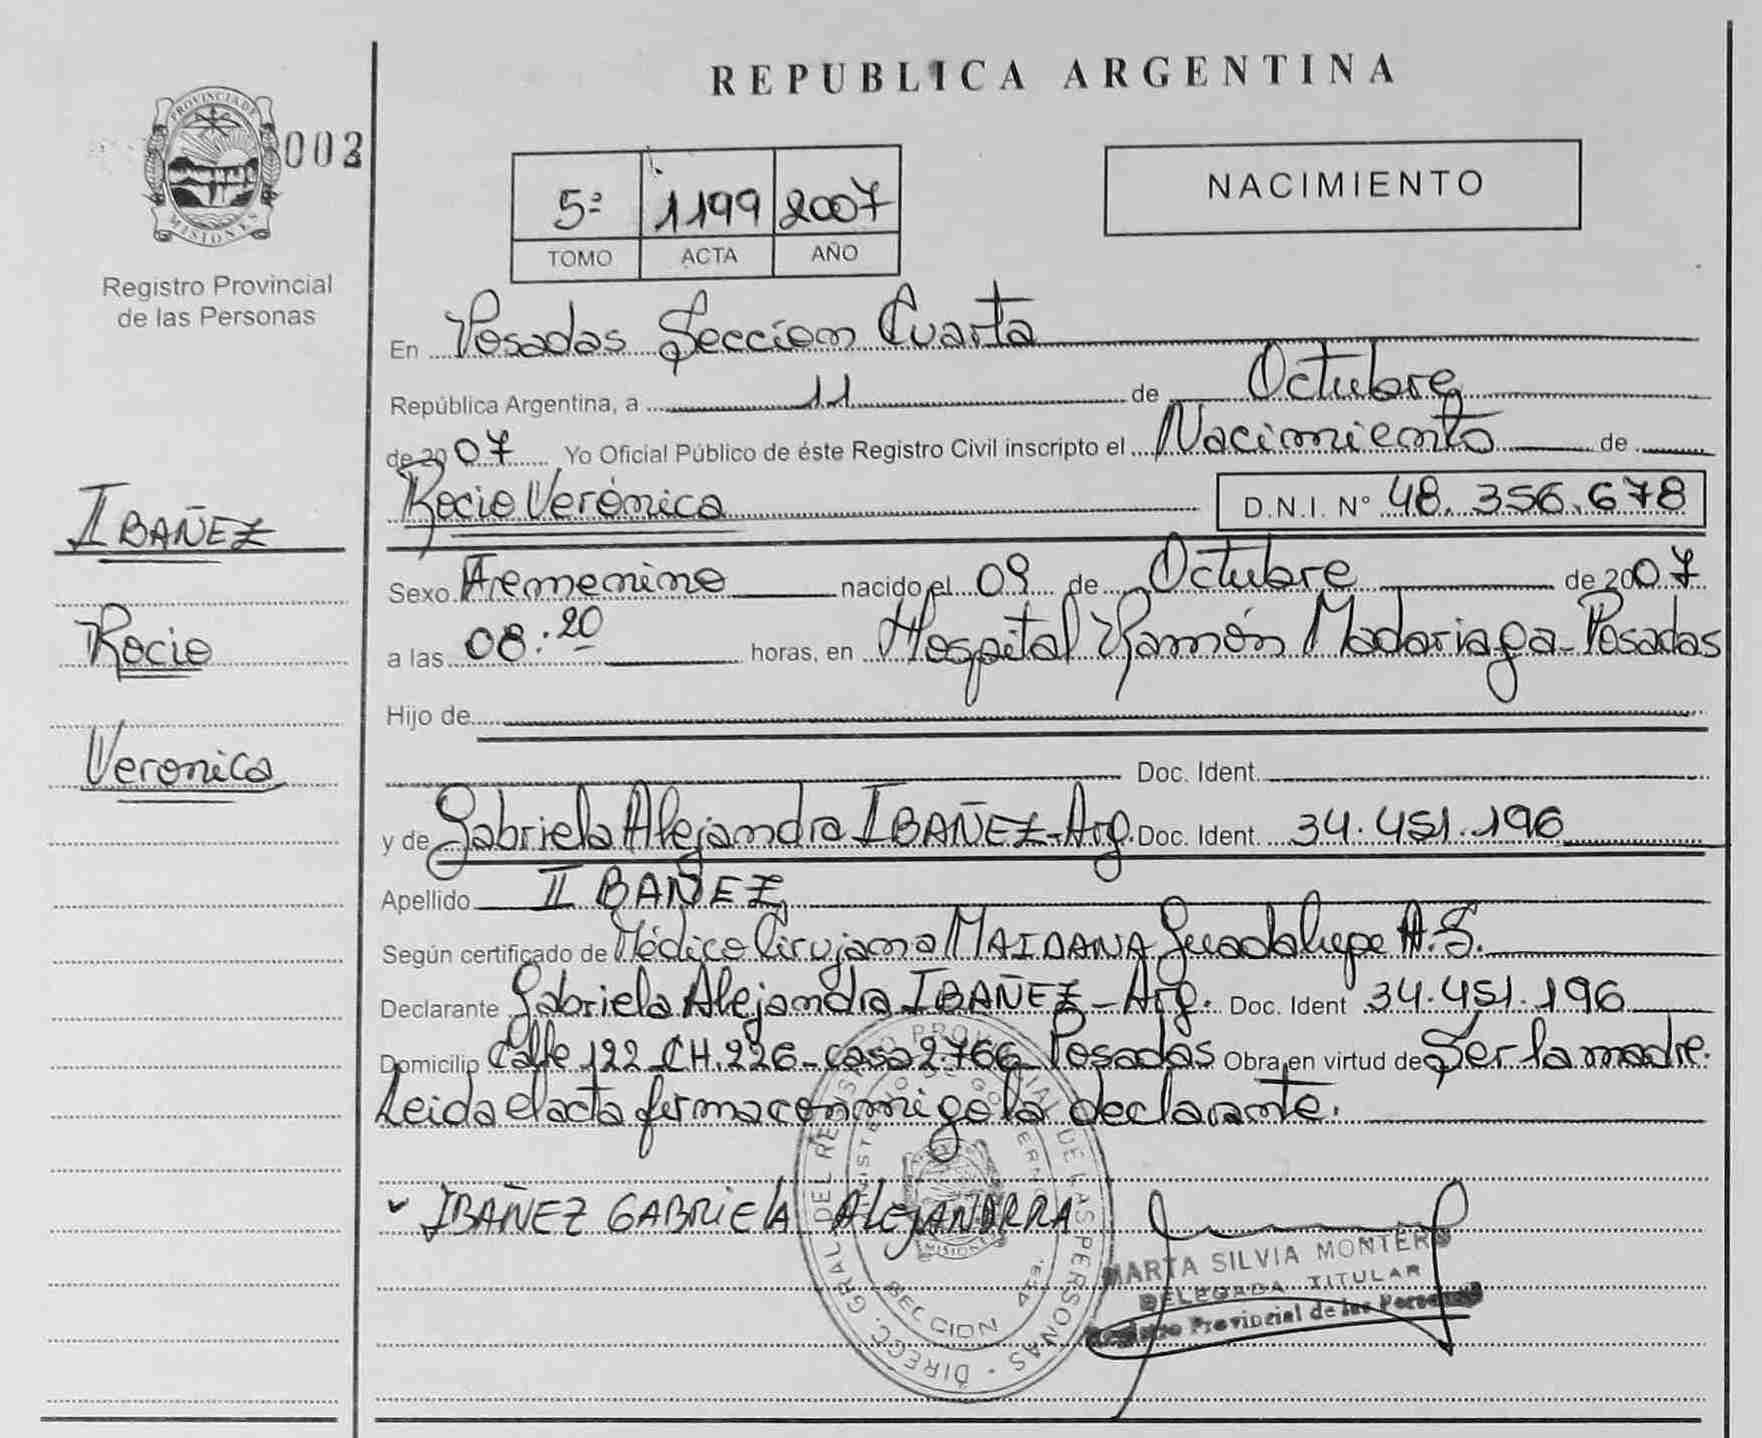 REPUBLICA ARGENTINA
PROVINCIA DE MISIONES
002
Registro Provincial
de las Personas
5ª 1199 2007
TOMO ACTA AÑO
NACIMIENTO
En Posadas Sección Cuarta
República Argentina, a 11 de Octubre
de 2007 Yo Oficial Público de éste Registro Civil inscripto el Nacimiento de
Rocio Verónica D.N.I. Nº 48.356.678
IBAÑEZ
Rocio
Veronica
Sexo Femenino nacido el 09 de Octubre de 2007
a las 08:20 horas, en Hospital Ramón Madariaga - Posadas
Hijo de
Doc. Ident.
y de Gabriela Alejandra IBAÑEZ - Arg. Doc. Ident. 34.451.196
Apellido IBAÑEZ
Según certificado de Médico Cirujano MAIDANA Guadalupe A.S.
Declarante Gabriela Alejandra IBAÑEZ - Arg. Doc. Ident 34.451.196
Domicilio Calle 122 CH.226 - casa 2.766 Posadas Obra en virtud de Ser la madre.
Leida el acta firma conmigo la declarante.
IBAÑEZ GABRIELA ALEJANDRRA
DIREC. GRAL. DEL REGISTRO PROVINCIAL DE LAS PERSONAS
MINISTERIO DE GOBIERNO
MISIONES
SECCION 4ta.
MARTA SILVIA MONTERO
DELEGADA TITULAR
Registro Provincial de las Personas